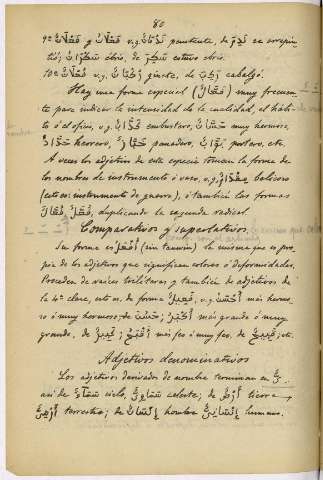 80
9º فَعْلَانٌ y فَعْلَانُ v.g. نَدْمَانٌ penitente, de نَدِمَ se arrepin-
tió; سَكْرَانُ ébrio, de سَكِرَ estuvo ébrio.
10º v.g. ginete, de رَكِبَ cabalgó.
Hay una forma especial (فَعَّالٌ) muy frecuen-
te para indicar la intensidad de la cualidad, el hábi-
to ó el oficio, v.g. كَذَّابٌ embustero, muy hermoso,
حَدَّادٌ herrero, خَبَّازٌ panadero, portero, etc.
A veces los adjetivos de esta especie toman la forma de
los nombres de instrumento ó vaso, v.g. belicoso
(esto es: instrumento de guerra), ó también las formas
duplicando la segunda radical.
Comparativos y superlativos.
Su forma es أَفْعَلُ (sin tanuin) la misma que es pro-
pia de los adjetivos que significan colores ó deformidades.
Proceden de raíces trilíteras y también de adjetivos de
la 4ª clase, esto es, de forma فَعِيلٌ, v.g. أَحْسَنُ más hermo-
so ó muy hermoso, de حَسَنٌ; أَكْبَرُ más grande ó muy
grande, de كَبِيرٌ; أَقْبَحُ más feo ó muy feo, de قَبِيحٌ, etc.
Adjetivos denominativos
Los adjetivos derivados de nombre terminan en ـِيٌّ,
así de سَمَاءٌ cielo, سَمَاوِيٌّ celeste; de أَرْضٌ tierra
أَرْضِيٌّ terrestre; de إِنْسَانٌ hombre إِنْسَانِيٌّ humano.